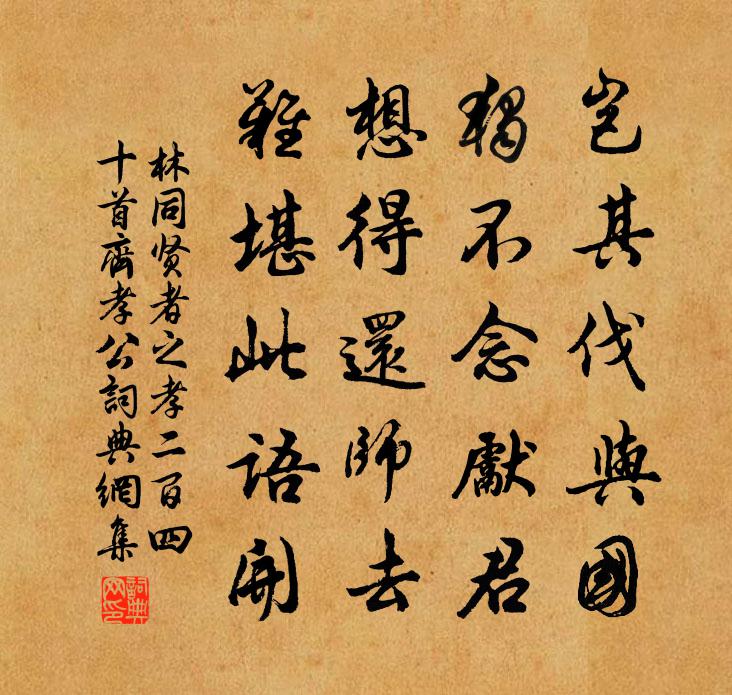 岂其伐與國
獨不念獻君
想得還師去
難堪此語聞
林同贤者之孝二百四
十首齊孝公詞典網集
詞典
网印